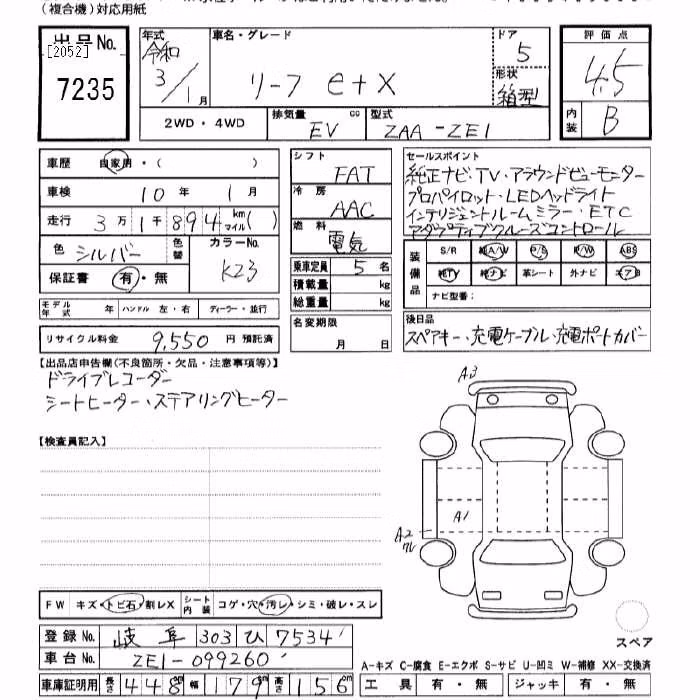 (複合機)対応用紙
出品No. [2052] 7235
年式 令和 3/1月
車名・グレード リーフ e+X
ドア 5
形状 箱型
評価点 4.5
内装 B
2WD・4WD
排気量 cc EV
型式 ZAA-ZE1
車歴 自家用・( )
車検 10年 1月
走行 3万1千894 km マイル( )
色 シルバー 色替 カラーNo. KZ3
保証書 有・無
モデル年式 年 ハンドル 左・右 ディーラー・並行
リサイクル料金 9,550 円 預託済
シフト FAT
冷房 AAC
燃料 電気
乗車定員 5 名
積載量 kg
総重量 kg
名変期限 月 日
セールスポイント
純正ナビ・TV・アラウンドビューモニター
プロパイロット・LEDヘッドライト
インテリジェントルームミラー・ETC
アダプティブクルーズコントロール
装備品 S/R 純A/W P/S P/W ABS
純TV 純ナビ 革シート 外ナビ エアB
ナビ型番:
後日品
スペアキー・充電ケーブル・充電ポートカバー
【出品店申告欄(不良箇所・欠品・注意事項等)】
ドライブレコーダー
シートヒーター・ステアリングヒーター
【検査員記入】
A3
A1
A2
ワレ
スペア
FW キズ・トビ石・割レX シート内装 コゲ・穴・汚レ・シミ・破レ・スレ
登録No. 岐阜 303 ひ 7534
車台No. ZE1-099260
車庫証明用 長さ 448 cm 幅 179 cm 高さ 156 cm
A-キズ C-腐食 E-エクボ S-サビ U-凹ミ W-補修 XX-交換済
工具 有・無 ジャッキ 有・無